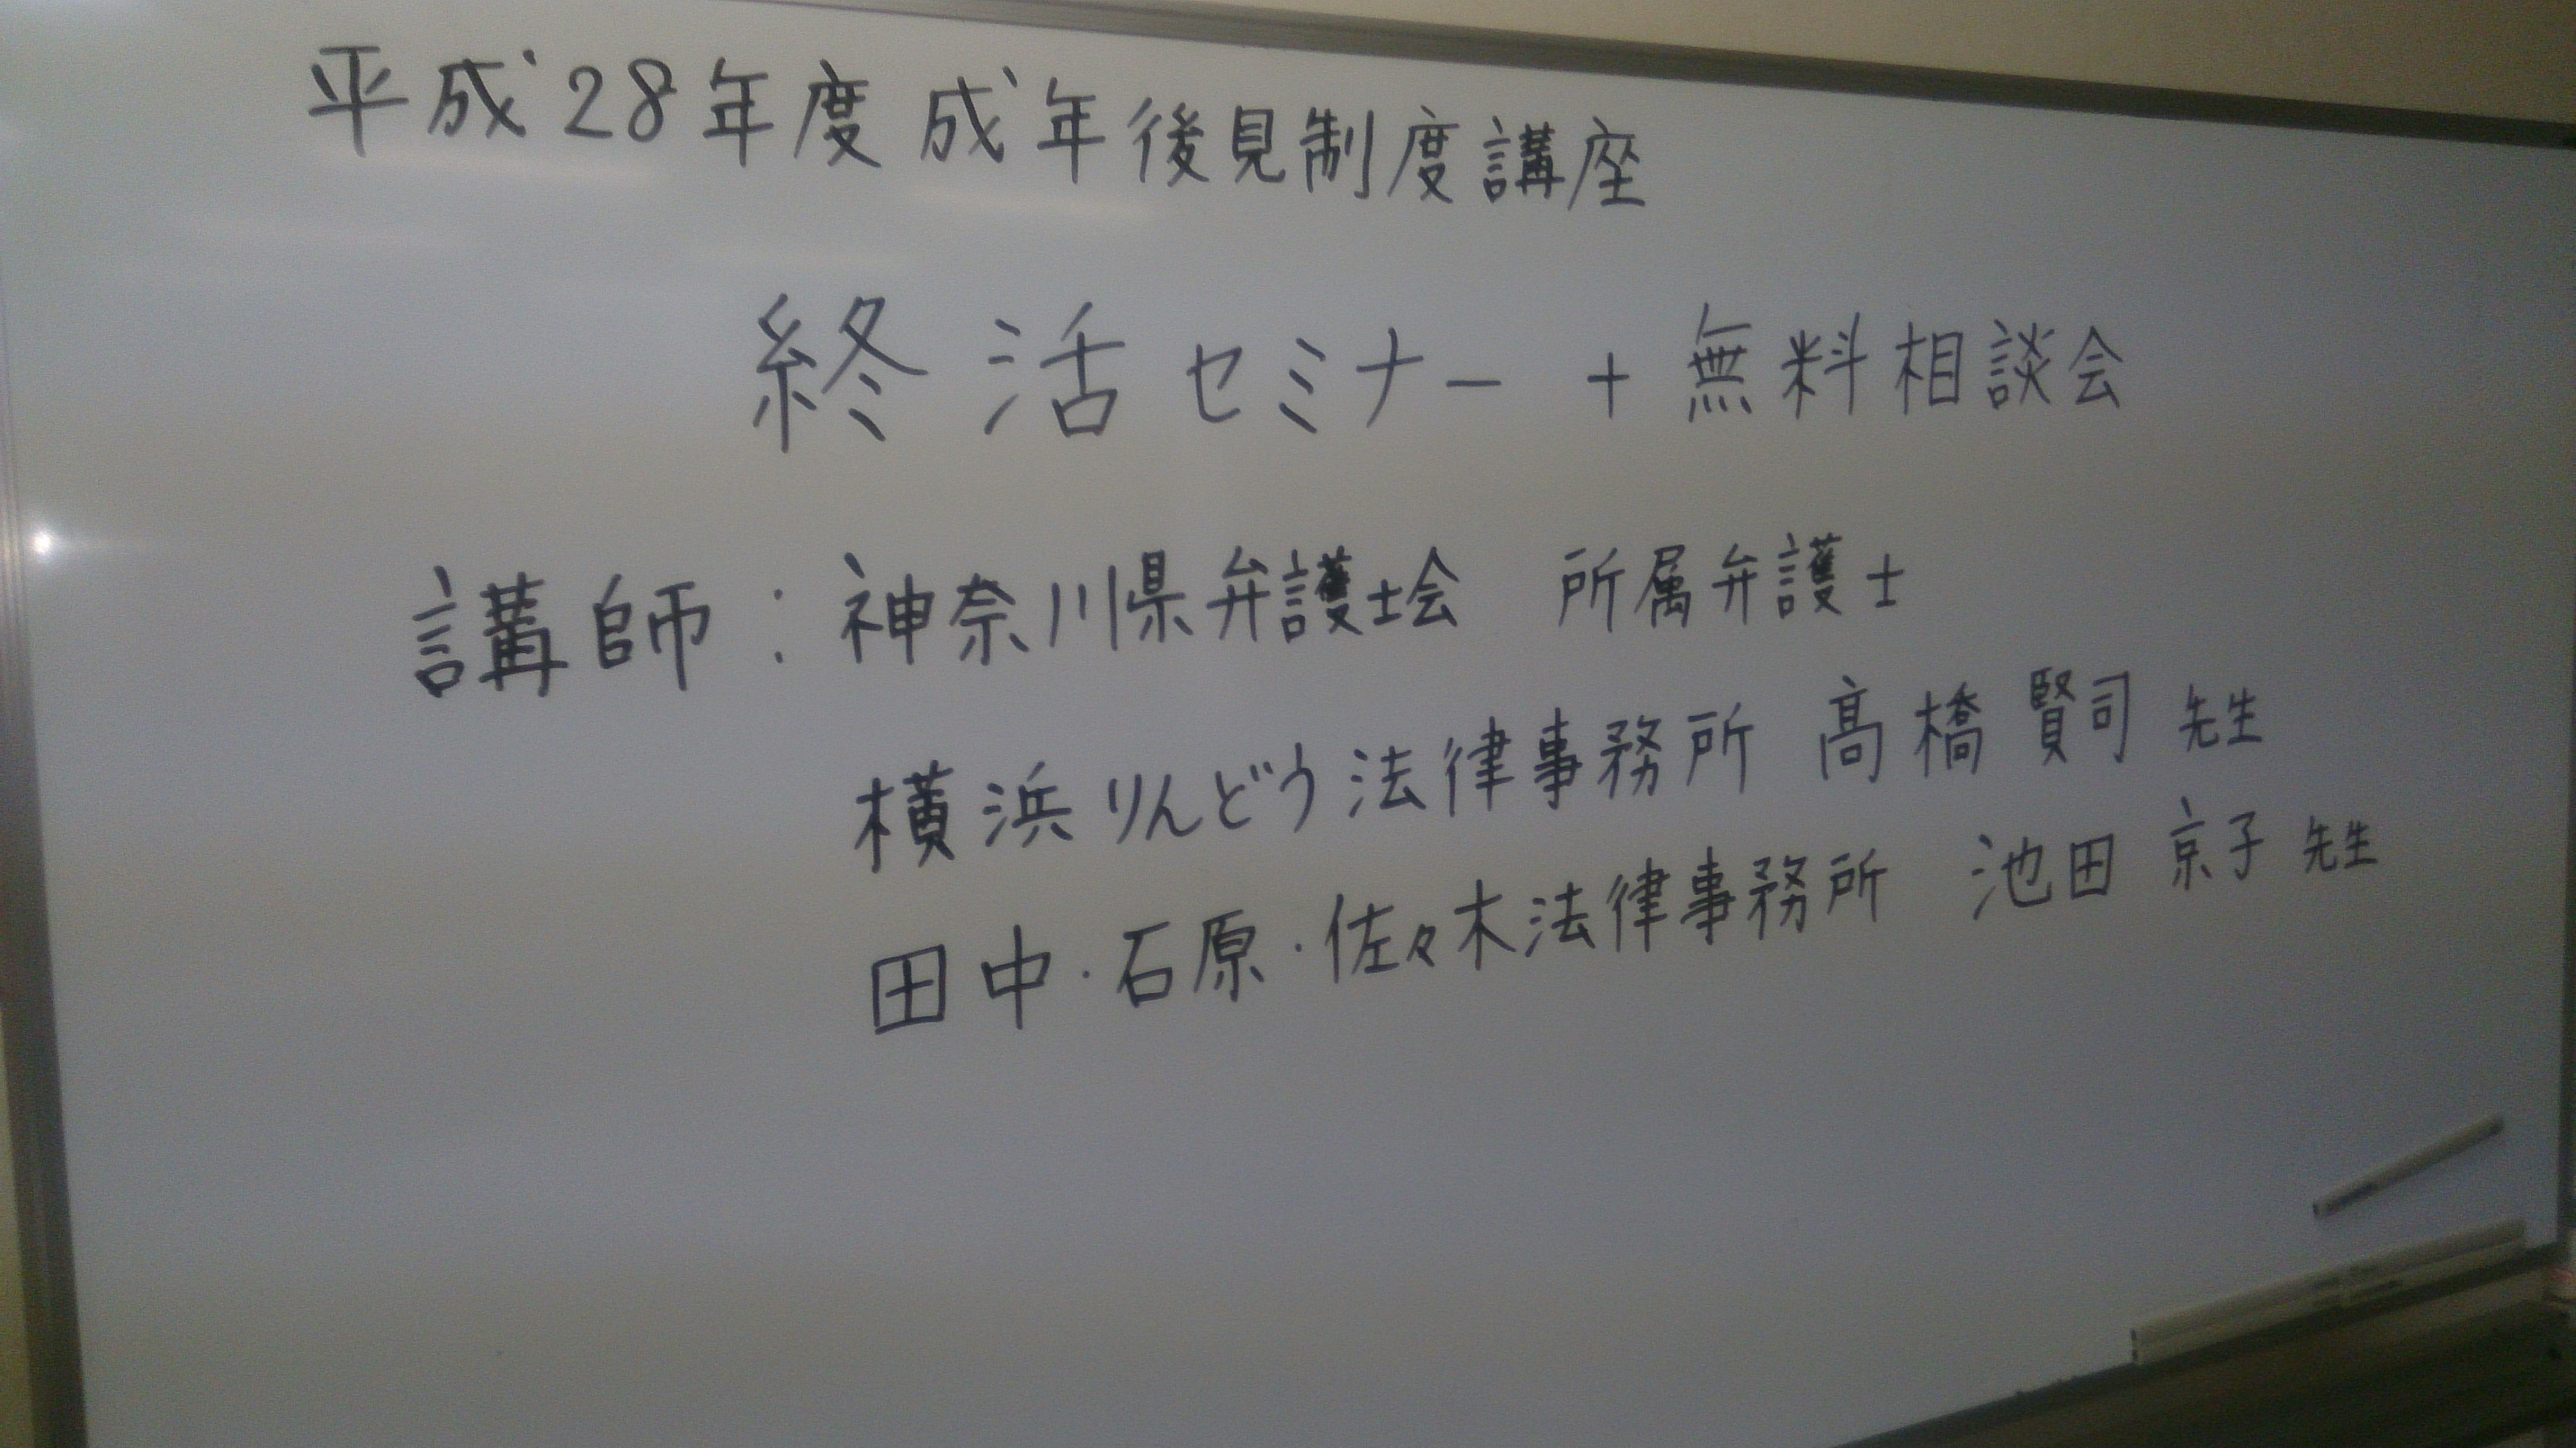 平成28年度 成年後見制度講座
終活セミナー + 無料相談会
講師：神奈川県弁護士会 所属弁護士
横浜りんどう法律事務所 髙橋 賢司 先生
田中・石原・佐々木法律事務所 池田 京子 先生